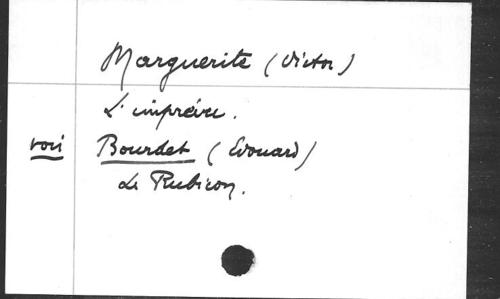 Marguerite (Victor)
L'imprévu.
voir Bourdet (Edouard)
Le Rubicon.